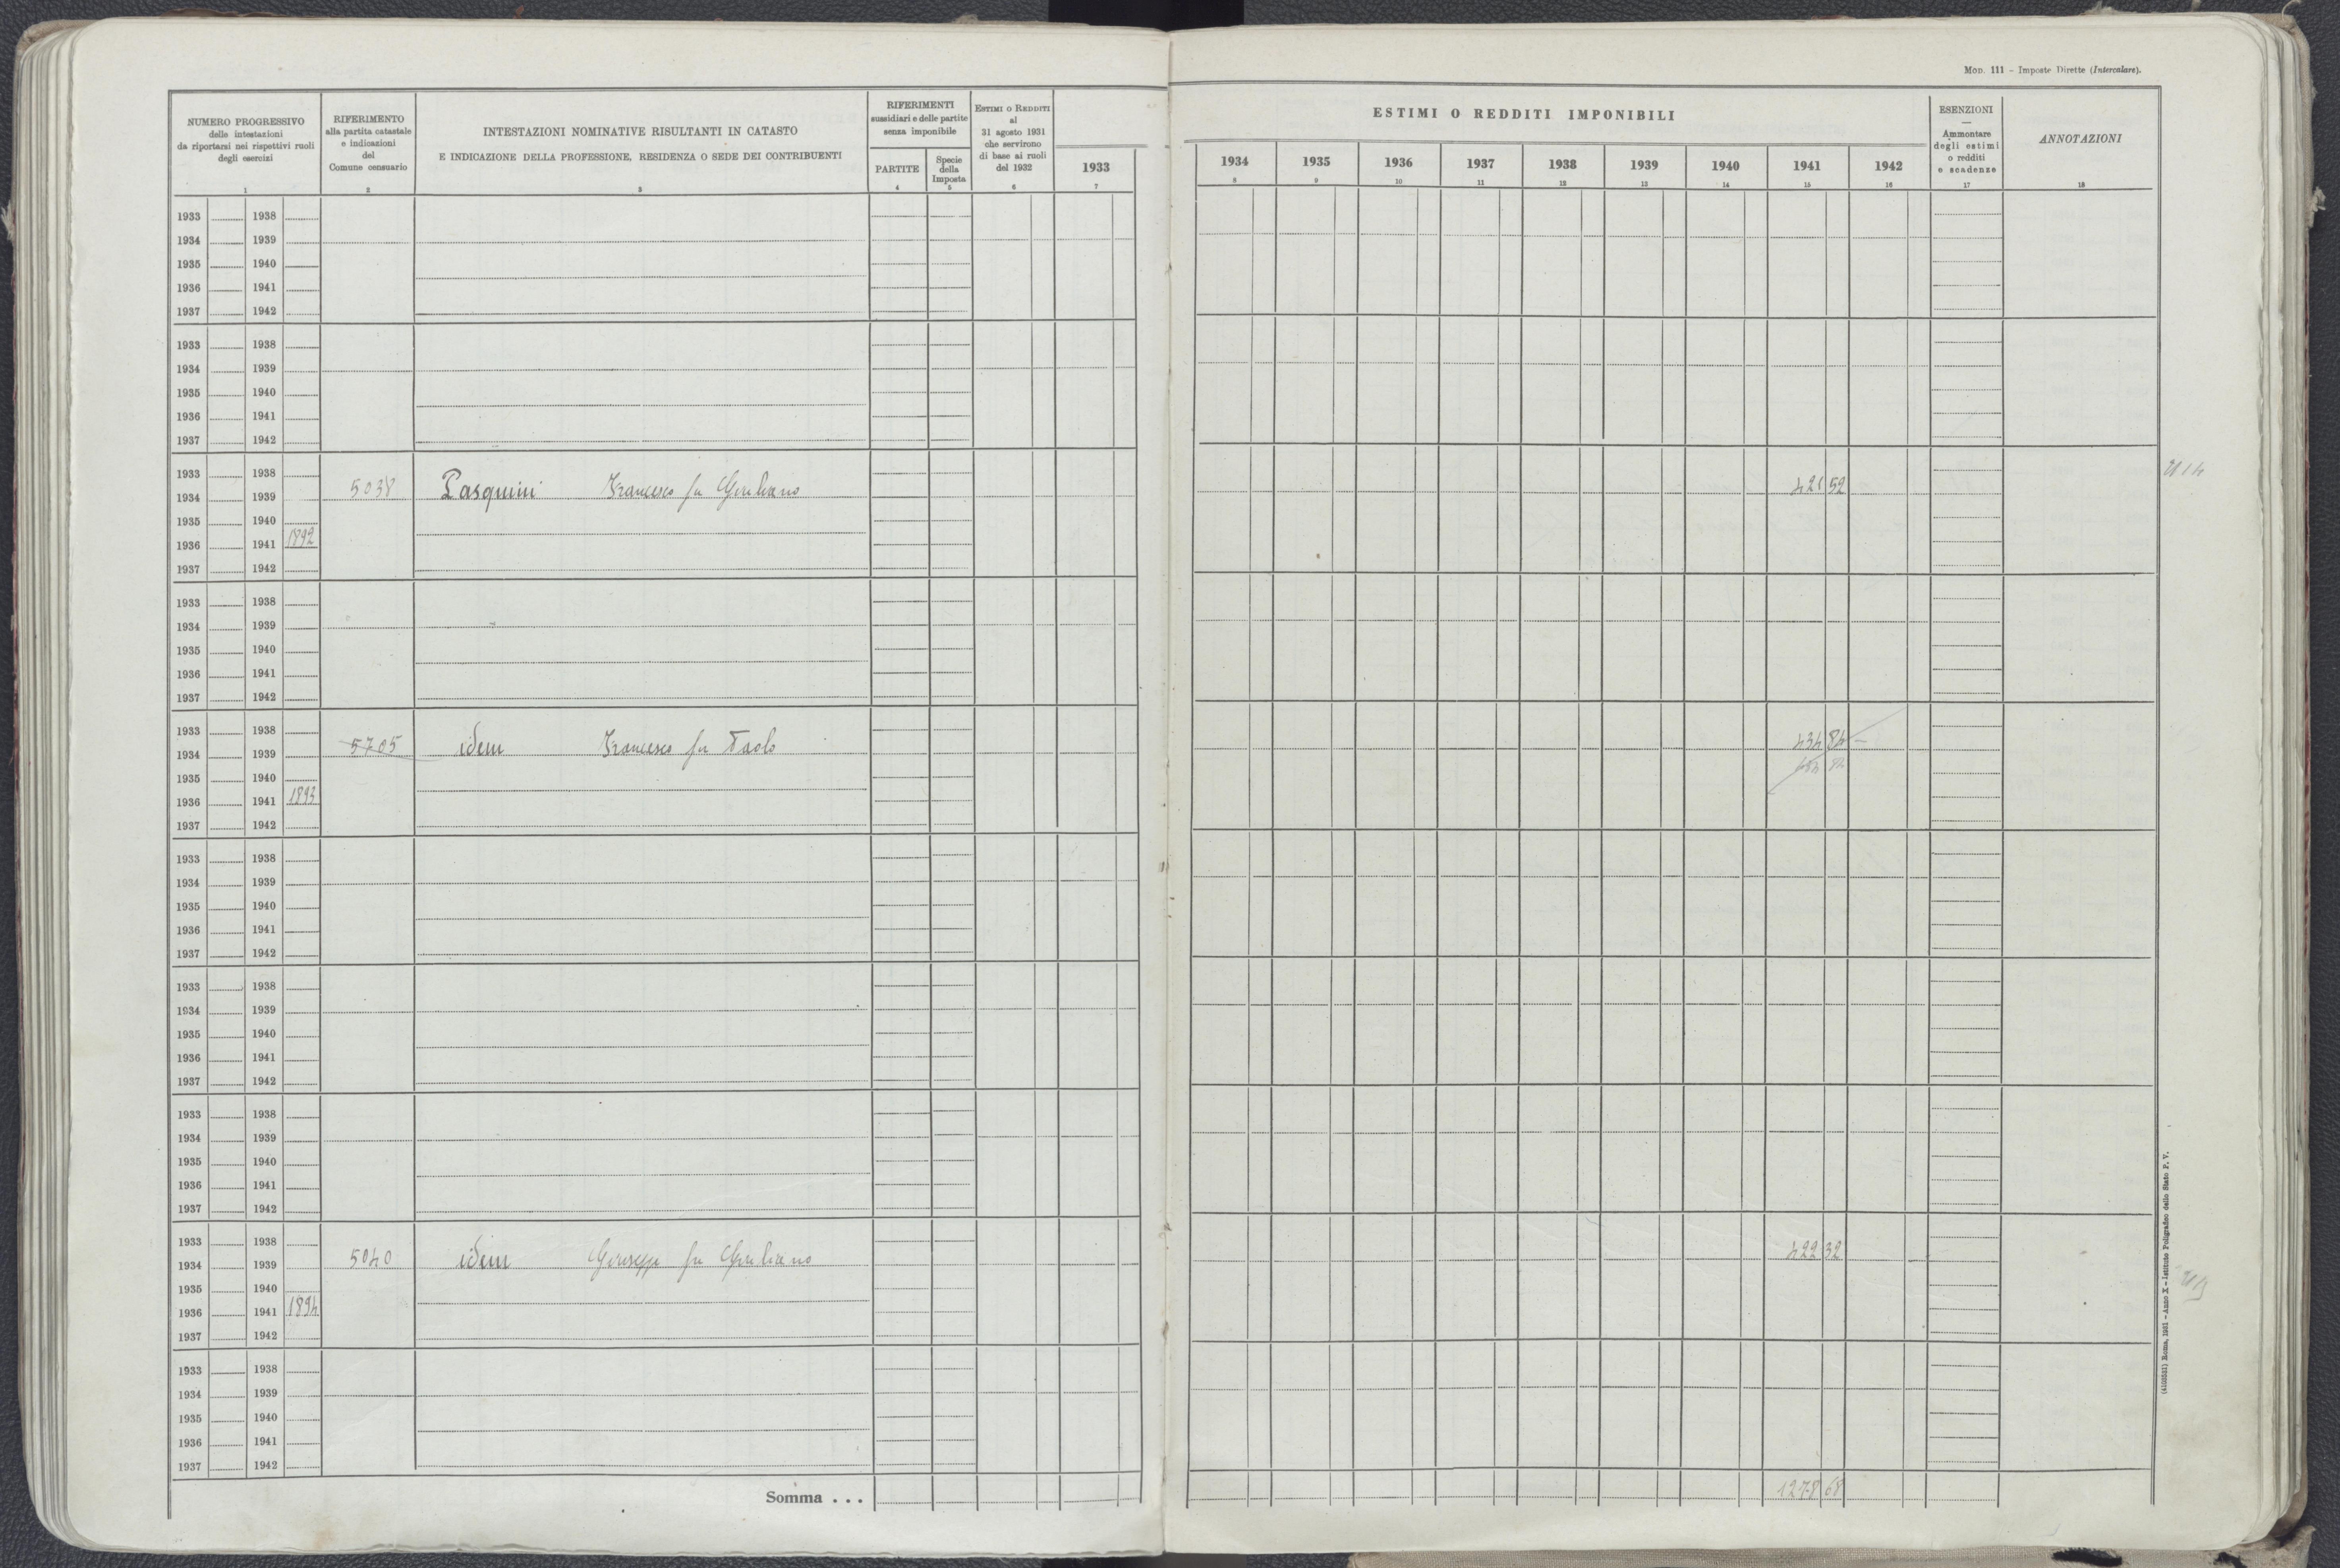 Mod. 111 – Imposte Dirette (Intercalare).
NUMERO PROGRESSIVO
delle intestazioni
da riportarsi nei rispettivi ruoli
degli esercizi
1
RIFERIMENTO
alla partita catastale
e indicazioni
del
Comune censuario
2
INTESTAZIONI NOMINATIVE RISULTANTI IN CATASTO
E INDICAZIONE DELLA PROFESSIONE, RESIDENZA O SEDE DEI CONTRIBUENTI
3
RIFERIMENTI
sussidiari e delle partite
senza imponibile
PARTITE
4
Specie
della
Imposta
5
Estimi o Redditi
al
31 agosto 1931
che servirono
di base ai ruoli
del 1932
6
1933
7
ESTIMI O REDDITI IMPONIBILI
1934 1935 1936 1937 1938 1939 1940 1941 1942
8 9 10 11 12 13 14 15 16
ESENZIONI
—
Ammontare
degli estimi
o redditi
e scadenze
17
ANNOTAZIONI
18
1933 1938
1934 1939
1935 1940
1936 1941
1937 1942
1933 1938
1934 1939
1935 1940
1936 1941
1937 1942
1933 1938
1934 1939 5038 Pasquini Francesco fu Giuliano 421 52
1935 1940
1936 1941 1892
1937 1942
1933 1938
1934 1939
1935 1940
1936 1941
1937 1942
1933 1938
1934 1939 5705 idem Francesco fu Paolo 434 84
1935 1940 434 84
1936 1941 1893
1937 1942
1933 1938
1934 1939
1935 1940
1936 1941
1937 1942
1933 1938
1934 1939
1935 1940
1936 1941
1937 1942
1933 1938
1934 1939
1935 1940
1936 1941
1937 1942
1933 1938
1934 1939 5040 idem Giuseppe fu Giuliano 422 32
1935 1940
1936 1941 1894
1937 1942
1933 1938
1934 1939
1935 1940
1936 1941
1937 1942
Somma . . . 1278 68
(4108531) Roma, 1931 – Anno X – Istituto Poligrafico dello Stato P. V.